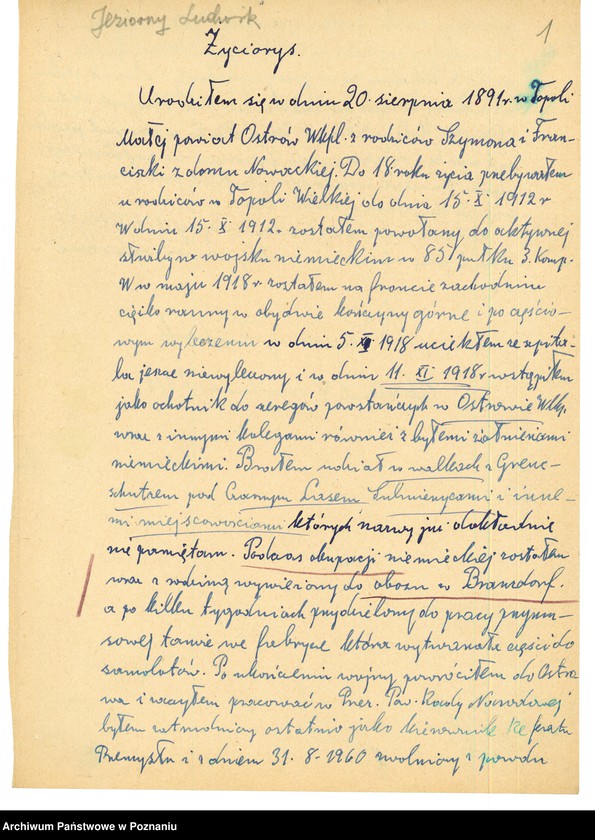 "Jeziorny Ludwik"
1
Życiorys.
Urodziłem się w dniu 20. sierpnia 1891 r. w Topoli
Małej powiat Ostrów Wkpl. z rodziców Szymona i Fran-
ciszki z domu Nowackiej. Do 18 roku życia przebywałem
u rodziców w Topoli Wielkiej do dnia 15. X 1912 r
W dniu 15. X 1912. zostałem powołany do aktywnej
służby w wojsku niemieckim w 85 pułku 3. Komp.
W w maju 1918 r zostałem na froncie zachodnim
ciężko ranny w obydwie kończyny górne i po częścio-
wym wyleczeniu w dniu 5. XI 1918 uciekłem ze szpita-
la jeszcze niewyleczony i w dniu 11. XI 1918 r wstąpiłem
jako ochotnik do szeregów powstańczych w Ostrowie Wlkp.
wraz z innymi kolegami również z byłemi żołnierzami
niemieckimi. Brałem udział w walkach z Grenc-
schutzem pod Czarnym Lasem Sulmierzycami i inne-
mi miejscowościami których nazwy już dokładnie
nie pamiętam. Podczas okupacji niemieckiej zostałem
wraz z rodziną wywieziony do obozu w
a po kilku tygodniach przydzielony do pracy przymu-
sowej tamże we fabryce która wytwarzała części do
samolotów. Po ukończeniu wojny powróciłem do Ostro
wa i zacząłem pracować w Prez. Pow. Rady Narodowej
byłem zatrudniony ostatnio jako kierownik Referatu
Przemysłu i z dniem 31. 8-1960 zwolniony z powodu
Archiwum Państwowe w Poznaniu